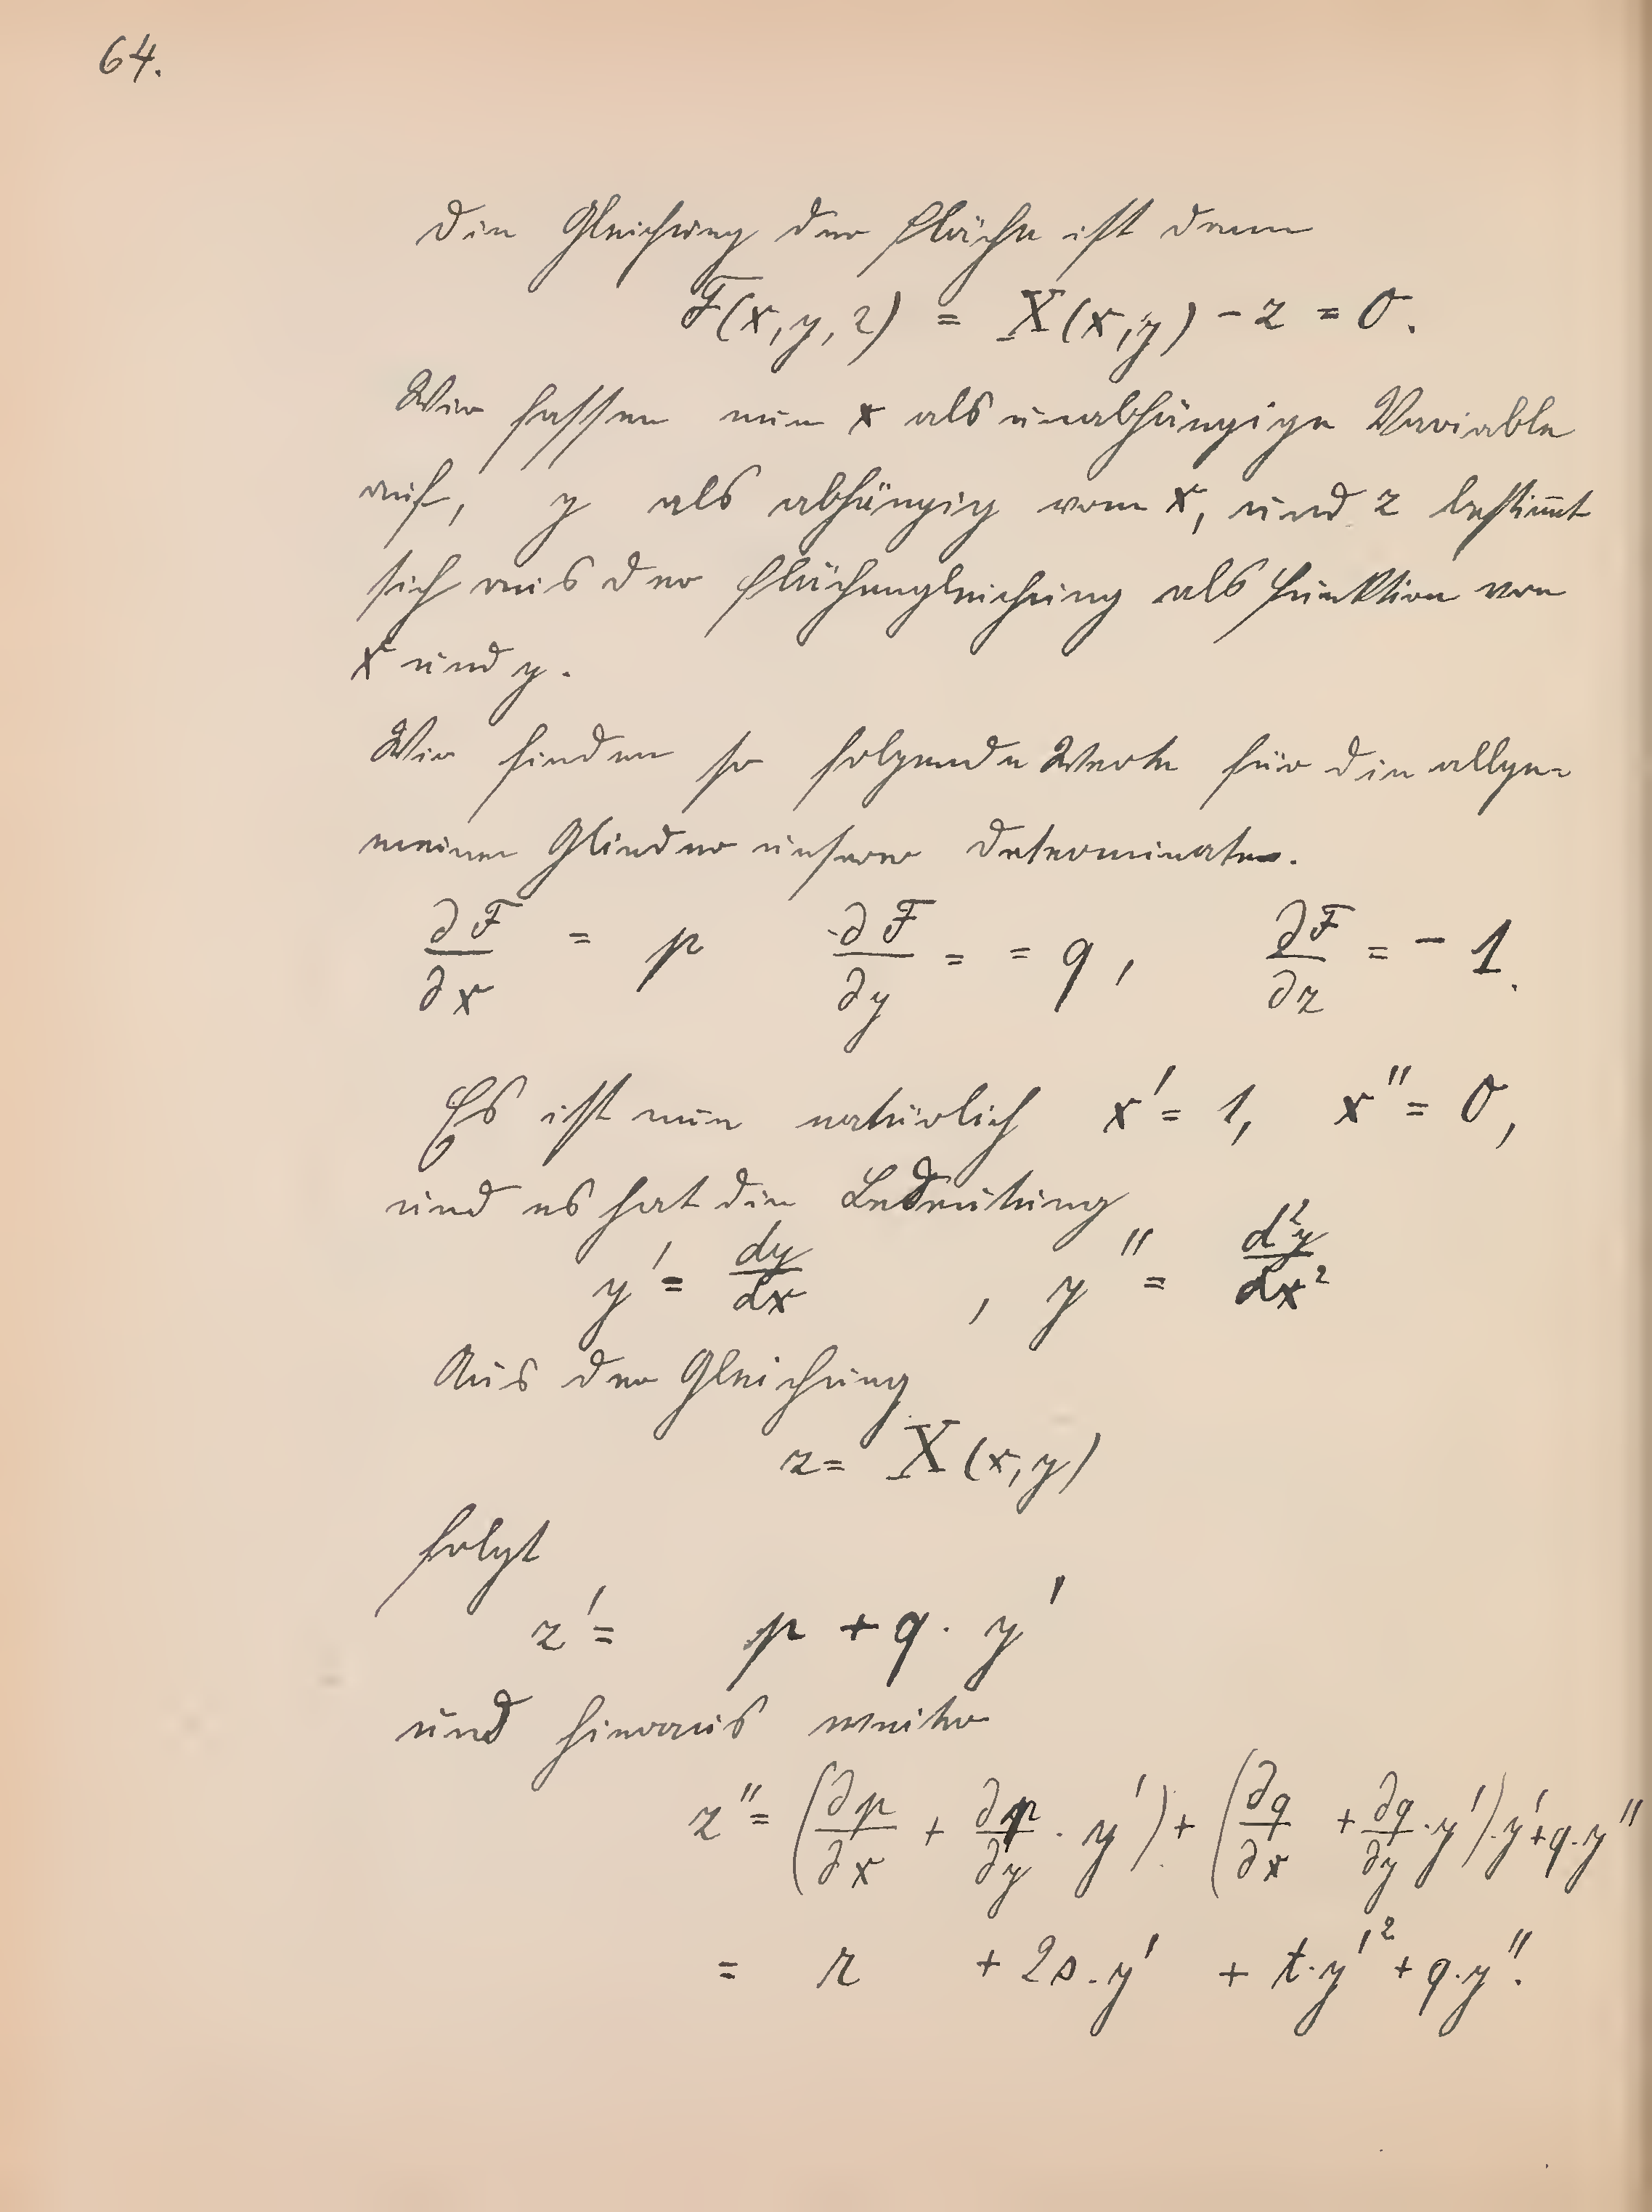 64.
Die Gleichung der Fläche ist dann
F(x, y, z) = X(x, y) − z = 0.
Wir fassen nun x als unabhängige Variable
auf, y als abhängig vom x, und z bestim̅t
sich aus der Flächengleichung als Funktion von
x und y.
Wir finden so folgende Werte für die allge-
meinen Glieder unserer Determinaten.
∂F/∂x = p ∂F/∂y = = q, ∂F/∂z = − 1.
Es ist nun natürlich x′ = 1, x″ = 0,
und es hat die Bedeutung
y′ = dy/dx , y″ = d²y/dx²
Aus der Gleichung
z = X(x, y)
folgt
z′ = p + q · y′
und hieraus weiter
z″ = (∂p/∂x + ∂p/∂y · y′) + (∂q/∂x + ∂q/∂y · y′) · y′ + q · y″
= r + 2s · y′ + t · y′² + q · y″.